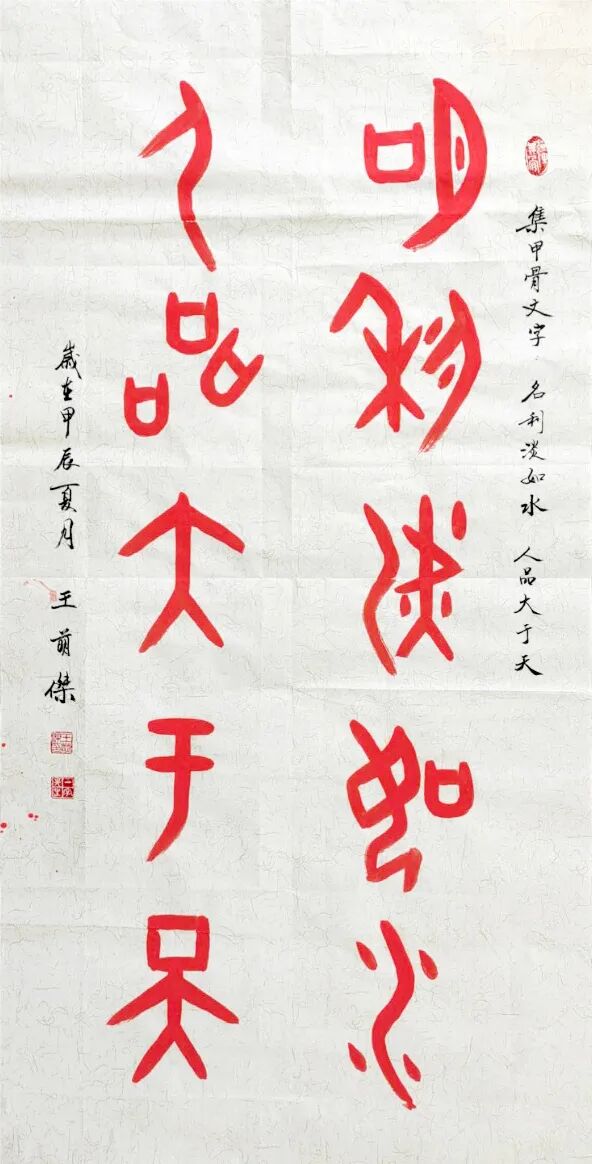 集甲骨文字 名利淡如水 人品大于天
名利淡如水
人品大于天
歲在甲辰夏月 王 傑